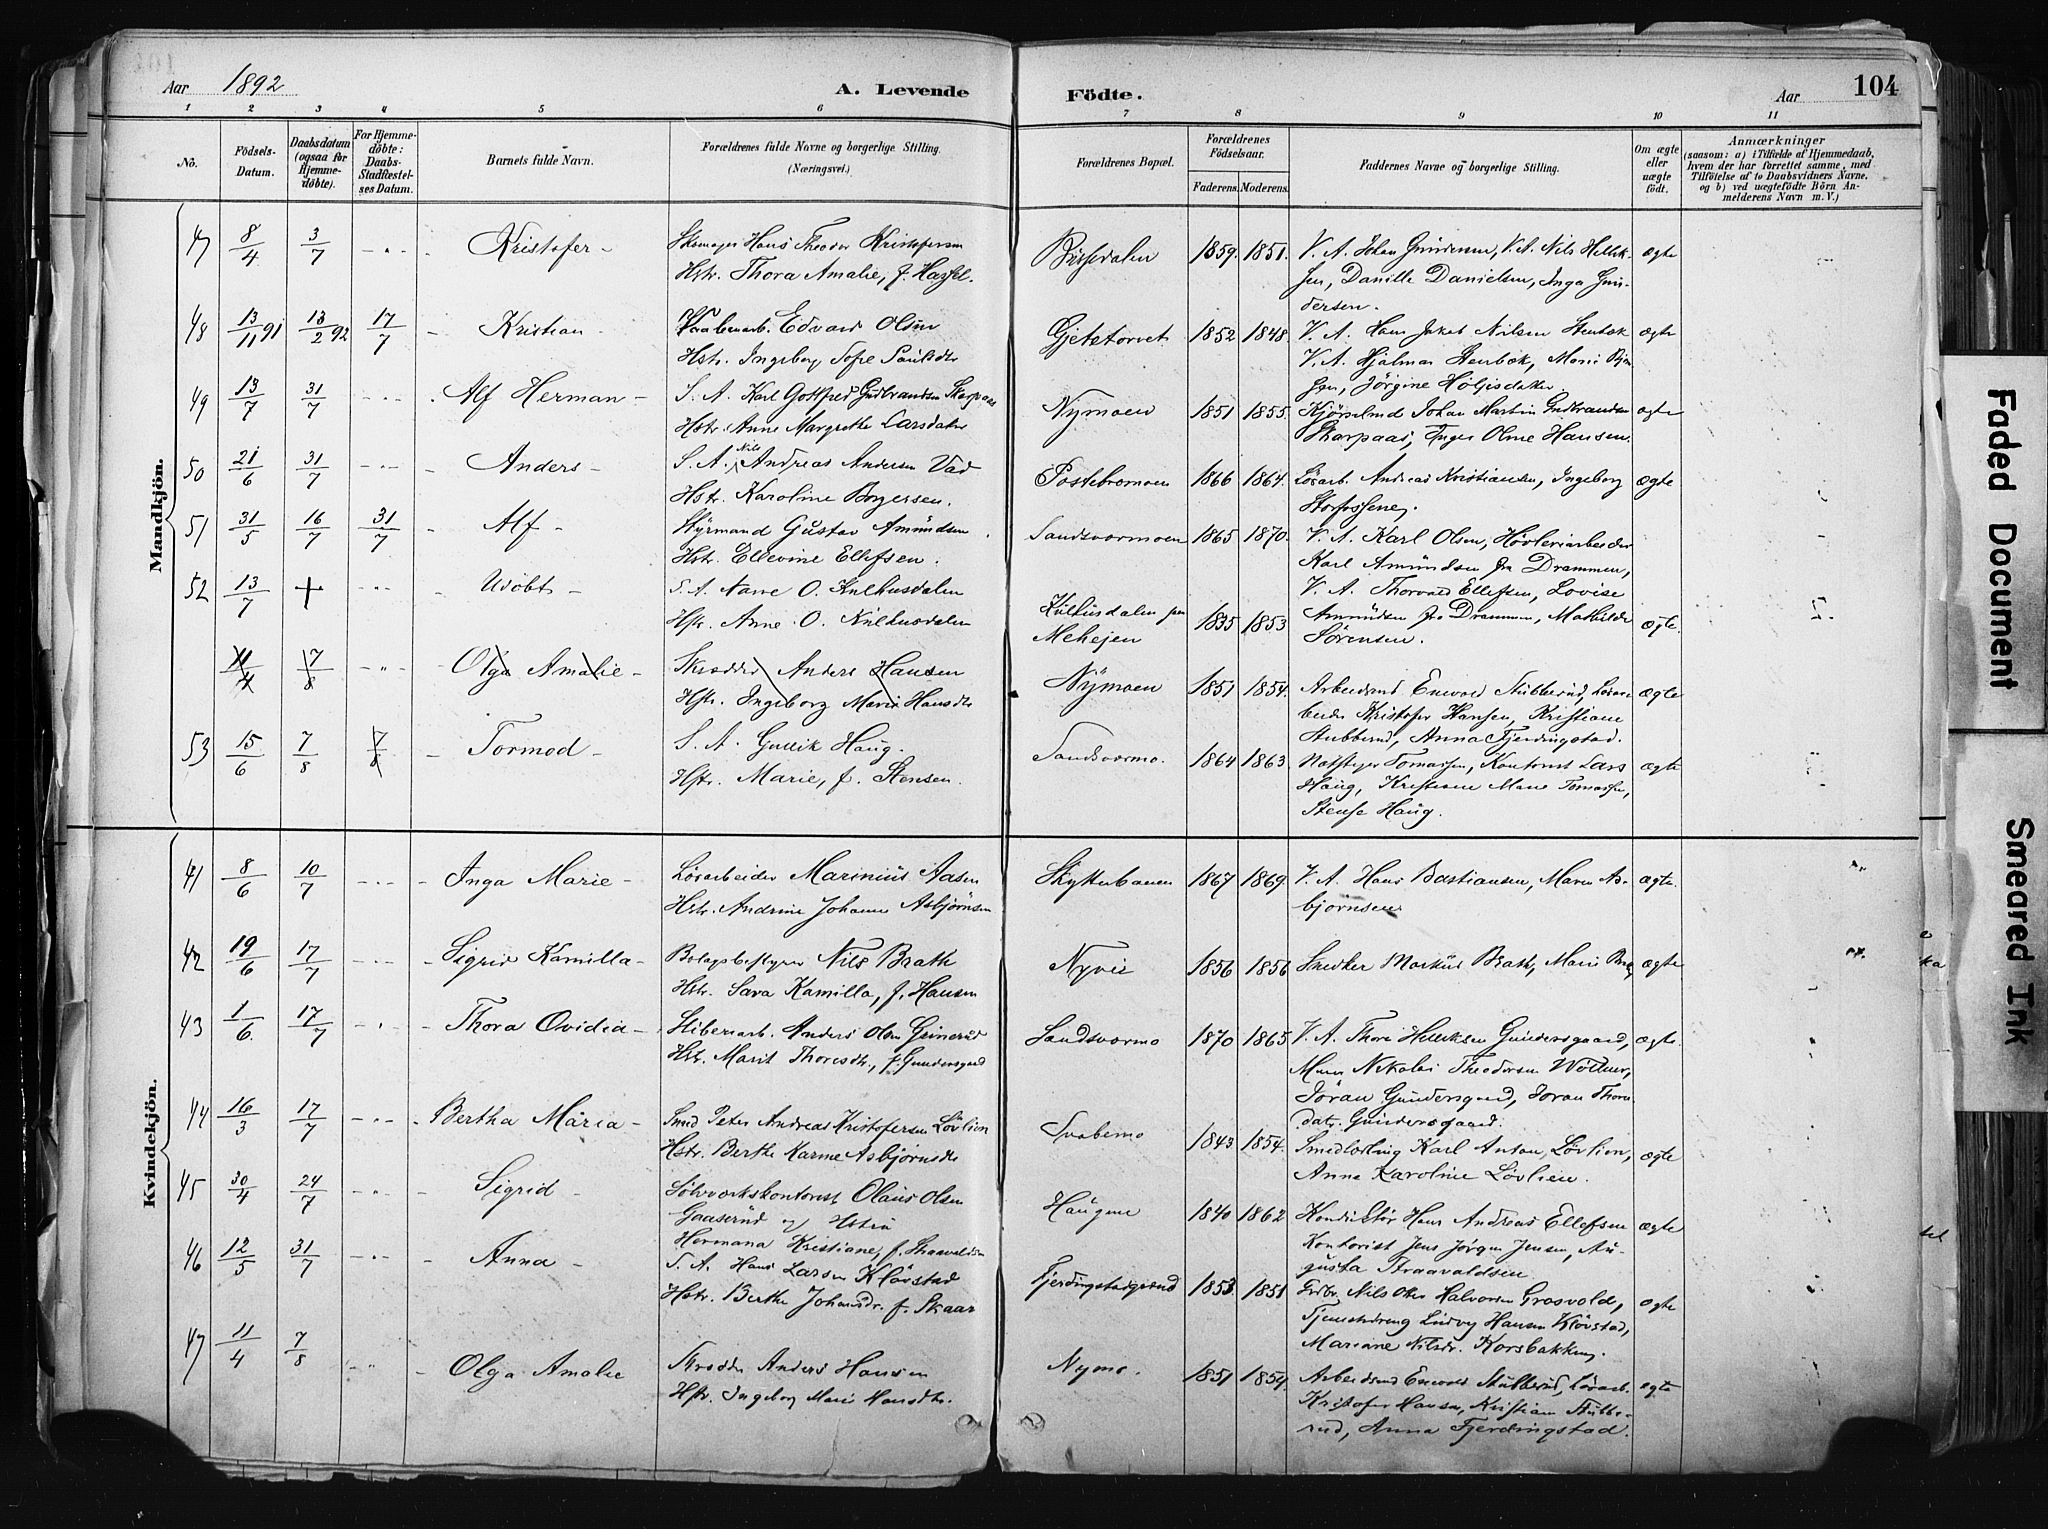 Aar 1892
A. Levende
Födte.
Aar
104
1 2 3 4 5 6 7 8 9 10 11
No.
Födsels-Datum.
Daabsdatum (ogsaa for Hjemme-döbte).
For Hjemme-döbte: Daabs-Stadfæstel-ses Datum.
Barnets fulde Navn.
Forældrenes fulde Navne og borgerlige Stilling. (Næringsvei.)
Forældrenes Bopæl.
Forældrenes Födselsaar.
Faderens. Moderens.
Faddernes Navne og borgerlige Stilling.
Om ægte eller uægte födt.
Anmærkninger
(saasom: a) i Tilfælde af Hjemmedaab, hvem der har forrettet samme, med Tilföielse af to Daabsvidners Navne, og b) ved uægtefödte Börn An-melderens Navn m. V.)
Mandkjön.
47 8/4 3/7 Kristofer
Skomager Hans Theodor Kristofersen
Hstr. Thora Amalie, f.
1859. 1851. V. A. Johan Gundersen, V. A. Nils Hellik-
sen, Danille Danielsen, Inga Gun-
dersen.
ægte
48 13/11 91 13/2 92 17/7 Kristian
Vaabenarb. Edvard Olsen
Hstr. Ingeborg Sofie Paulsdtr
Gjetetorvet 1852 1848. V. A. Hans Jakob Nilsen Stenbæk
V. A. Hjalmar Stenbæk,
Jörgine
ægte
49 13/7 31/7 Alf Herman
S. A. Karl Gottfred Gudbrandsen Skarpaas
Hstr. Anne Margrethe Larsdatter
Nymoen 1851 1855. Kjörselmd Johan Martin Gudbrandsen
Skarpaas, Inger Olme Hansen.
ægte
50 21/6 31/7 Anders
S. A. Nils Andreas Andersen Vad
Hstr. Karoline Borgersen.
Postebromoen 1866 1864. Lösarb. Andreas Kristiansen, Ingeborg
ægte
51 31/5 16/7 31/7 Alf
Styrmand Gustav Amundsen
Hstr. Ellevine Ellefsen.
Sandsværmoen 1865 1870. V. A. Karl Olsen, Hövleriarbeider
Karl Amundsen fra Drammen,
V. A. Thorvald Ellefsen, Lovise
Amundsen fra Drammen, Mathilde
Sörensen.
52 13/7 + Udöbt
S. A. Narve O. Kulhusdalen
Hstr. Anne O. Kulhusdalen
Kulhusdalen
1835 1853 ægte.
11/4 7/8 Olga Amalie
Skrædder Anders Hansen
Hstr. Ingeborg Marie Hansdtr
Nymoen 1851 1854. Arbeidsmd Enevold Stubberud, Lösar-
beider Kristofer Hansen, Kristiane
Stubberud, Anna Fjerdingstad.
ægte
53 15/6 7/8 7/8 Tormod
S. A. Gullik Haug.
Hstr. Marie, f. Stensen.
Sandsværmo. 1864 1863. Tomassen, Kontorist Lars
Haug, Kristiane Marie Tomassen,
Haug.
ægte
Kvindekjön.
41 8/6 10/7 Inga Marie
Lösarbeider Marinius Aasen
Hstr. Andrine Johanne Asbjörnsen
Skytterbanen 1867 1869. V. A. Hans Bastiansen, Maren As-
björnsen
ægte.
42 19/6 17/7 Sigrid Kamilla
Bolagsbestyrer Nils Brath
Hstr. Sara Kamilla, f. Hansen
Nyvei 1856 1856 Snedker Markus Brath, Marie
ægte
43 1/6 17/7 Thora Ovidia
Sliberiarb. Anders Olsen Grinerud
Hstr. Marit Thoresdtr., f. Gundersgaard
Sandsværmo 1870 1865 V. A. Thore Helliksen Gundersgaard,
Nikolai Theodorsen
Jöran Gundersgaard, Joran Thores-
datr. Gundersgaard.
ægte.
44 16/3 17/7 Bertha Maria
Smed Peter Andreas Kristofersen Lövlien
Hstr. Berthe Karine Asbjörnsdtr
1843 1854. Smedlærling Karl Anton Lövlien,
Anna Karoline Lövlien.
ægte
45 30/4 24/7 Sigrid
Sölvværkskontorist Olaus Olsen
Gaaserud og Hstru
Hermana Kristiane, f. Straavaldsen
Haugene 1840 1862 Konduktör Hans Andreas Ellefsen
Kontorist Jens Jörgen Jensen, Au-
gusta Straavaldsen
ægte
46 12/5 31/7 Anna
S. A. Hans Larsen Klövstad
Hstr. Berthe Johansdr. f. Skaar
Fjerdingstadgrund 1853. 1851 Grdbr. Nils Olsen Halvorsen Grosvold,
Tjenestedreng Ludvig Hansen Klövstad,
Mariane Nilsdr. Korsbakken.
ægte
47 11/4 7/8 Olga Amalie
Skrædder Anders Hansen
Hstr. Ingeborg Marie Hansdtr.
Nymo. 1851 1854. Arbeidsmd Enevold Stubberud, Lösarb.
Kristofer Hansen, Kristiane Stubbe-
rud, Anna Fjerdingstad.
ægte
Faded Document
Smeared Ink